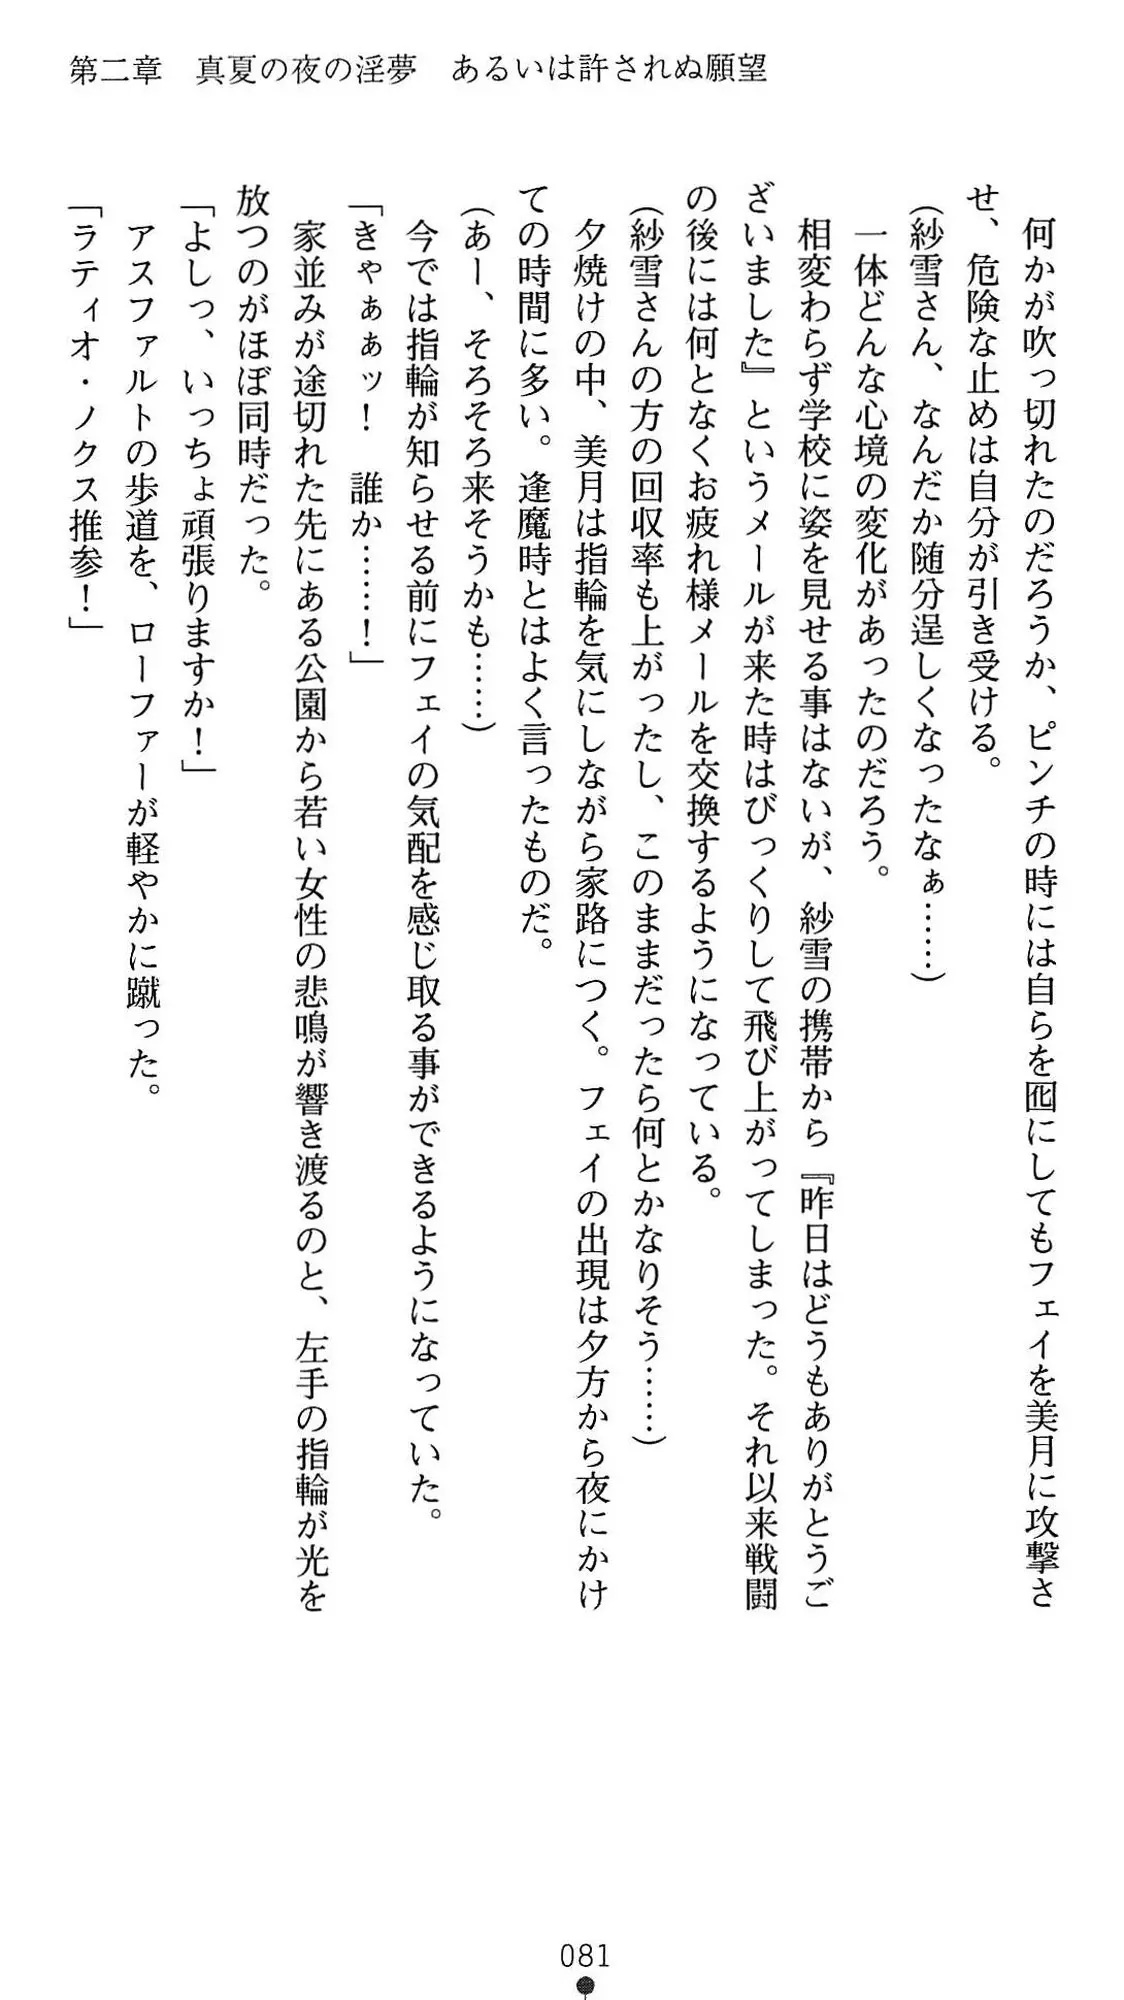 第二章　真夏の夜の淫夢　あるいは許されぬ願望
　何かが吹っ切れたのだろうか、ピンチの時には自らを囮にしてもフェイを美月に攻撃さ
せ、危険な止めは自分が引き受ける。
（紗雪さん、なんだか随分逞しくなったなぁ……）
　一体どんな心境の変化があったのだろう。
　相変わらず学校に姿を見せる事はないが、紗雪の携帯から『昨日はどうもありがとうご
ざいました』というメールが来た時はびっくりして飛び上がってしまった。それ以来戦闘
の後には何となくお疲れ様メールを交換するようになっている。
（紗雪さんの方の回収率も上がったし、このままだったら何とかなりそう……）
　夕焼けの中、美月は指輪を気にしながら家路につく。フェイの出現は夕方から夜にかけ
ての時間に多い。逢魔時とはよく言ったものだ。
（あー、そろそろ来そうかも……）
　今では指輪が知らせる前にフェイの気配を感じ取る事ができるようになっていた。
「きゃぁぁッ！　誰か……！」
　家並みが途切れた先にある公園から若い女性の悲鳴が響き渡るのと、左手の指輪が光を
放つのがほぼ同時だった。
「よしっ、いっちょ頑張りますか！」
　アスファルトの歩道を、ローファーが軽やかに蹴った。
「ラティオ・ノクス推参！」
081